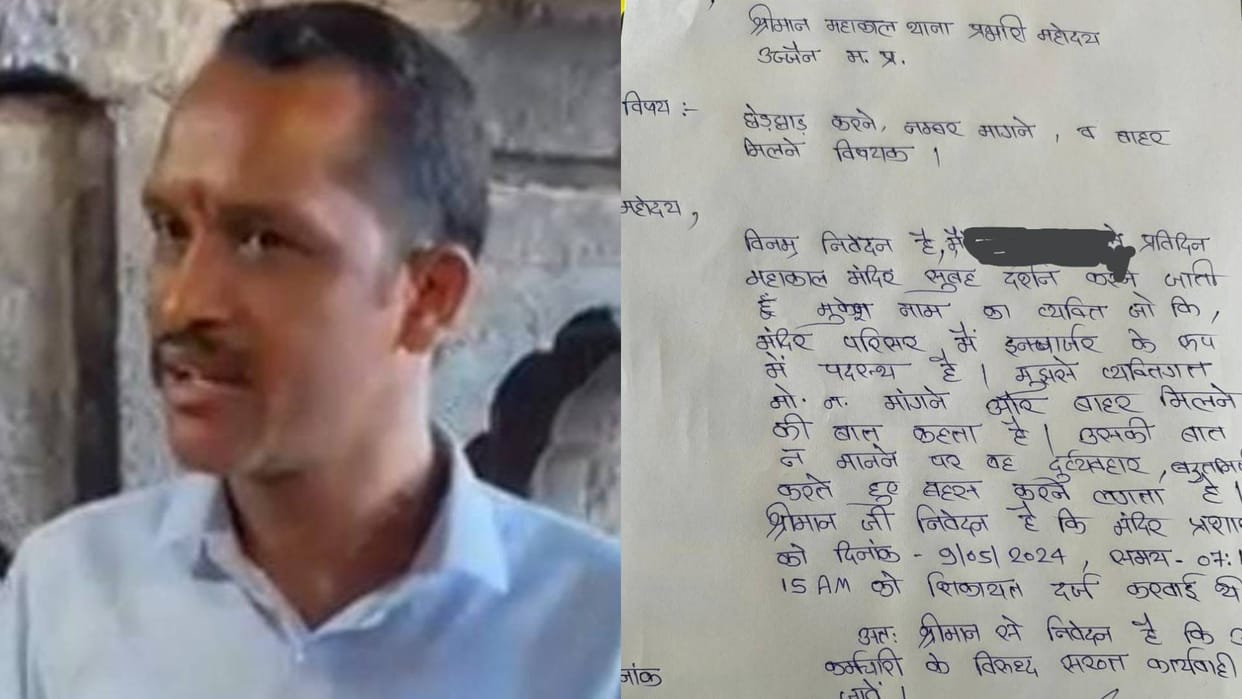 श्रीमान महाकाल थाना प्रभारी महोदय
उज्जैन म. प्र.
विषय :-
छेड़छाड़ करने, नम्बर मागने, व बाहर
मिलने विषयक ।
महोदय,
विनम्र निवेदन है, मैं प्रतिदिन
महाकाल मंदिर सुबह दर्शन करने जाती
हूँ मुकेश नाम का व्यक्ति जो कि,
मंदिर परिसर मैं इनचार्ज के रूप
में पदस्थ है । मुझसे व्यक्तिगत
मो. न. मांगने और बाहर मिलने
की बात कहता है । उसकी बात
न मानने पर वह दुर्व्यवहार,
करते हुए बहस करने लगता है ।
श्रीमान जी निवेदन है कि मंदिर
को दिनांक - 9/05/2024, समय - 07:
15 AM को शिकायत दर्ज करवाई
अतः श्रीमान से निवेदन है कि
कर्मचारी के विरुध्द सख्त कार्यवाही
जावें ।